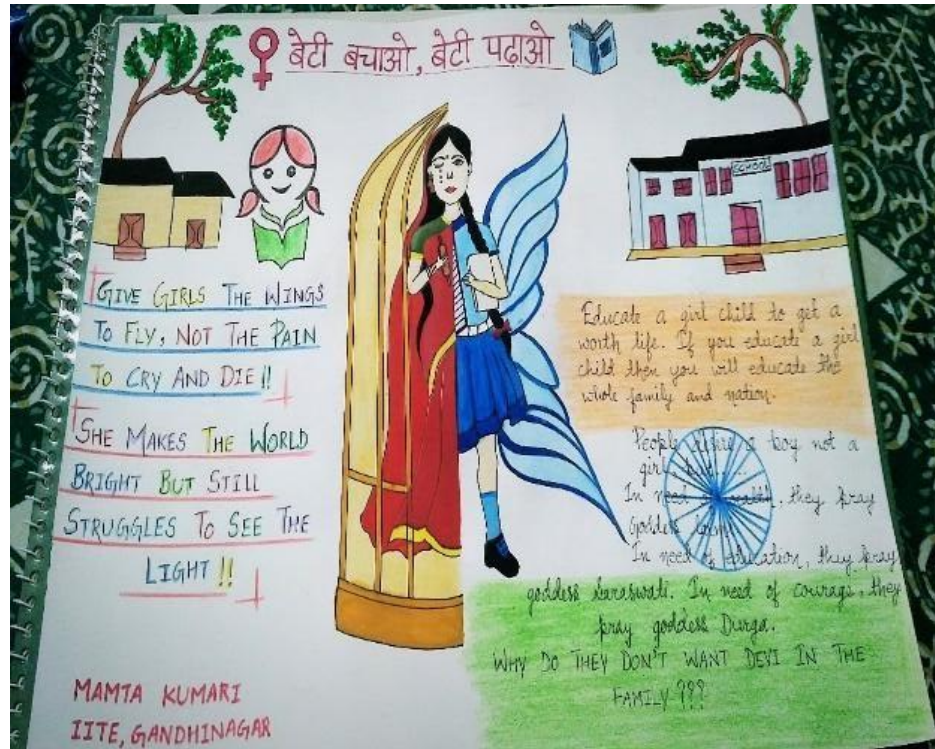 बेटी बचाओ, बेटी पढ़ाओ
SCHOOL
GIVE GIRLS THE WINGS
TO FLY, NOT THE PAIN
TO CRY AND DIE!!
SHE MAKES THE WORLD
BRIGHT BUT STILL
STRUGGLES TO SEE THE
LIGHT!!
Educate a girl child to get a
worth life. If you educate a girl
child then you will educate the
whole family and nation.
People desire a boy not a
girl
In need of wealth, they pray
Goddess
In need of education, they pray
goddess Saraswati. In need of courage, they
pray goddess Durga.
WHY DO THEY DON'T WANT DEVI IN THE
FAMILY???
MAMTA KUMARI
IITE, GANDHINAGAR